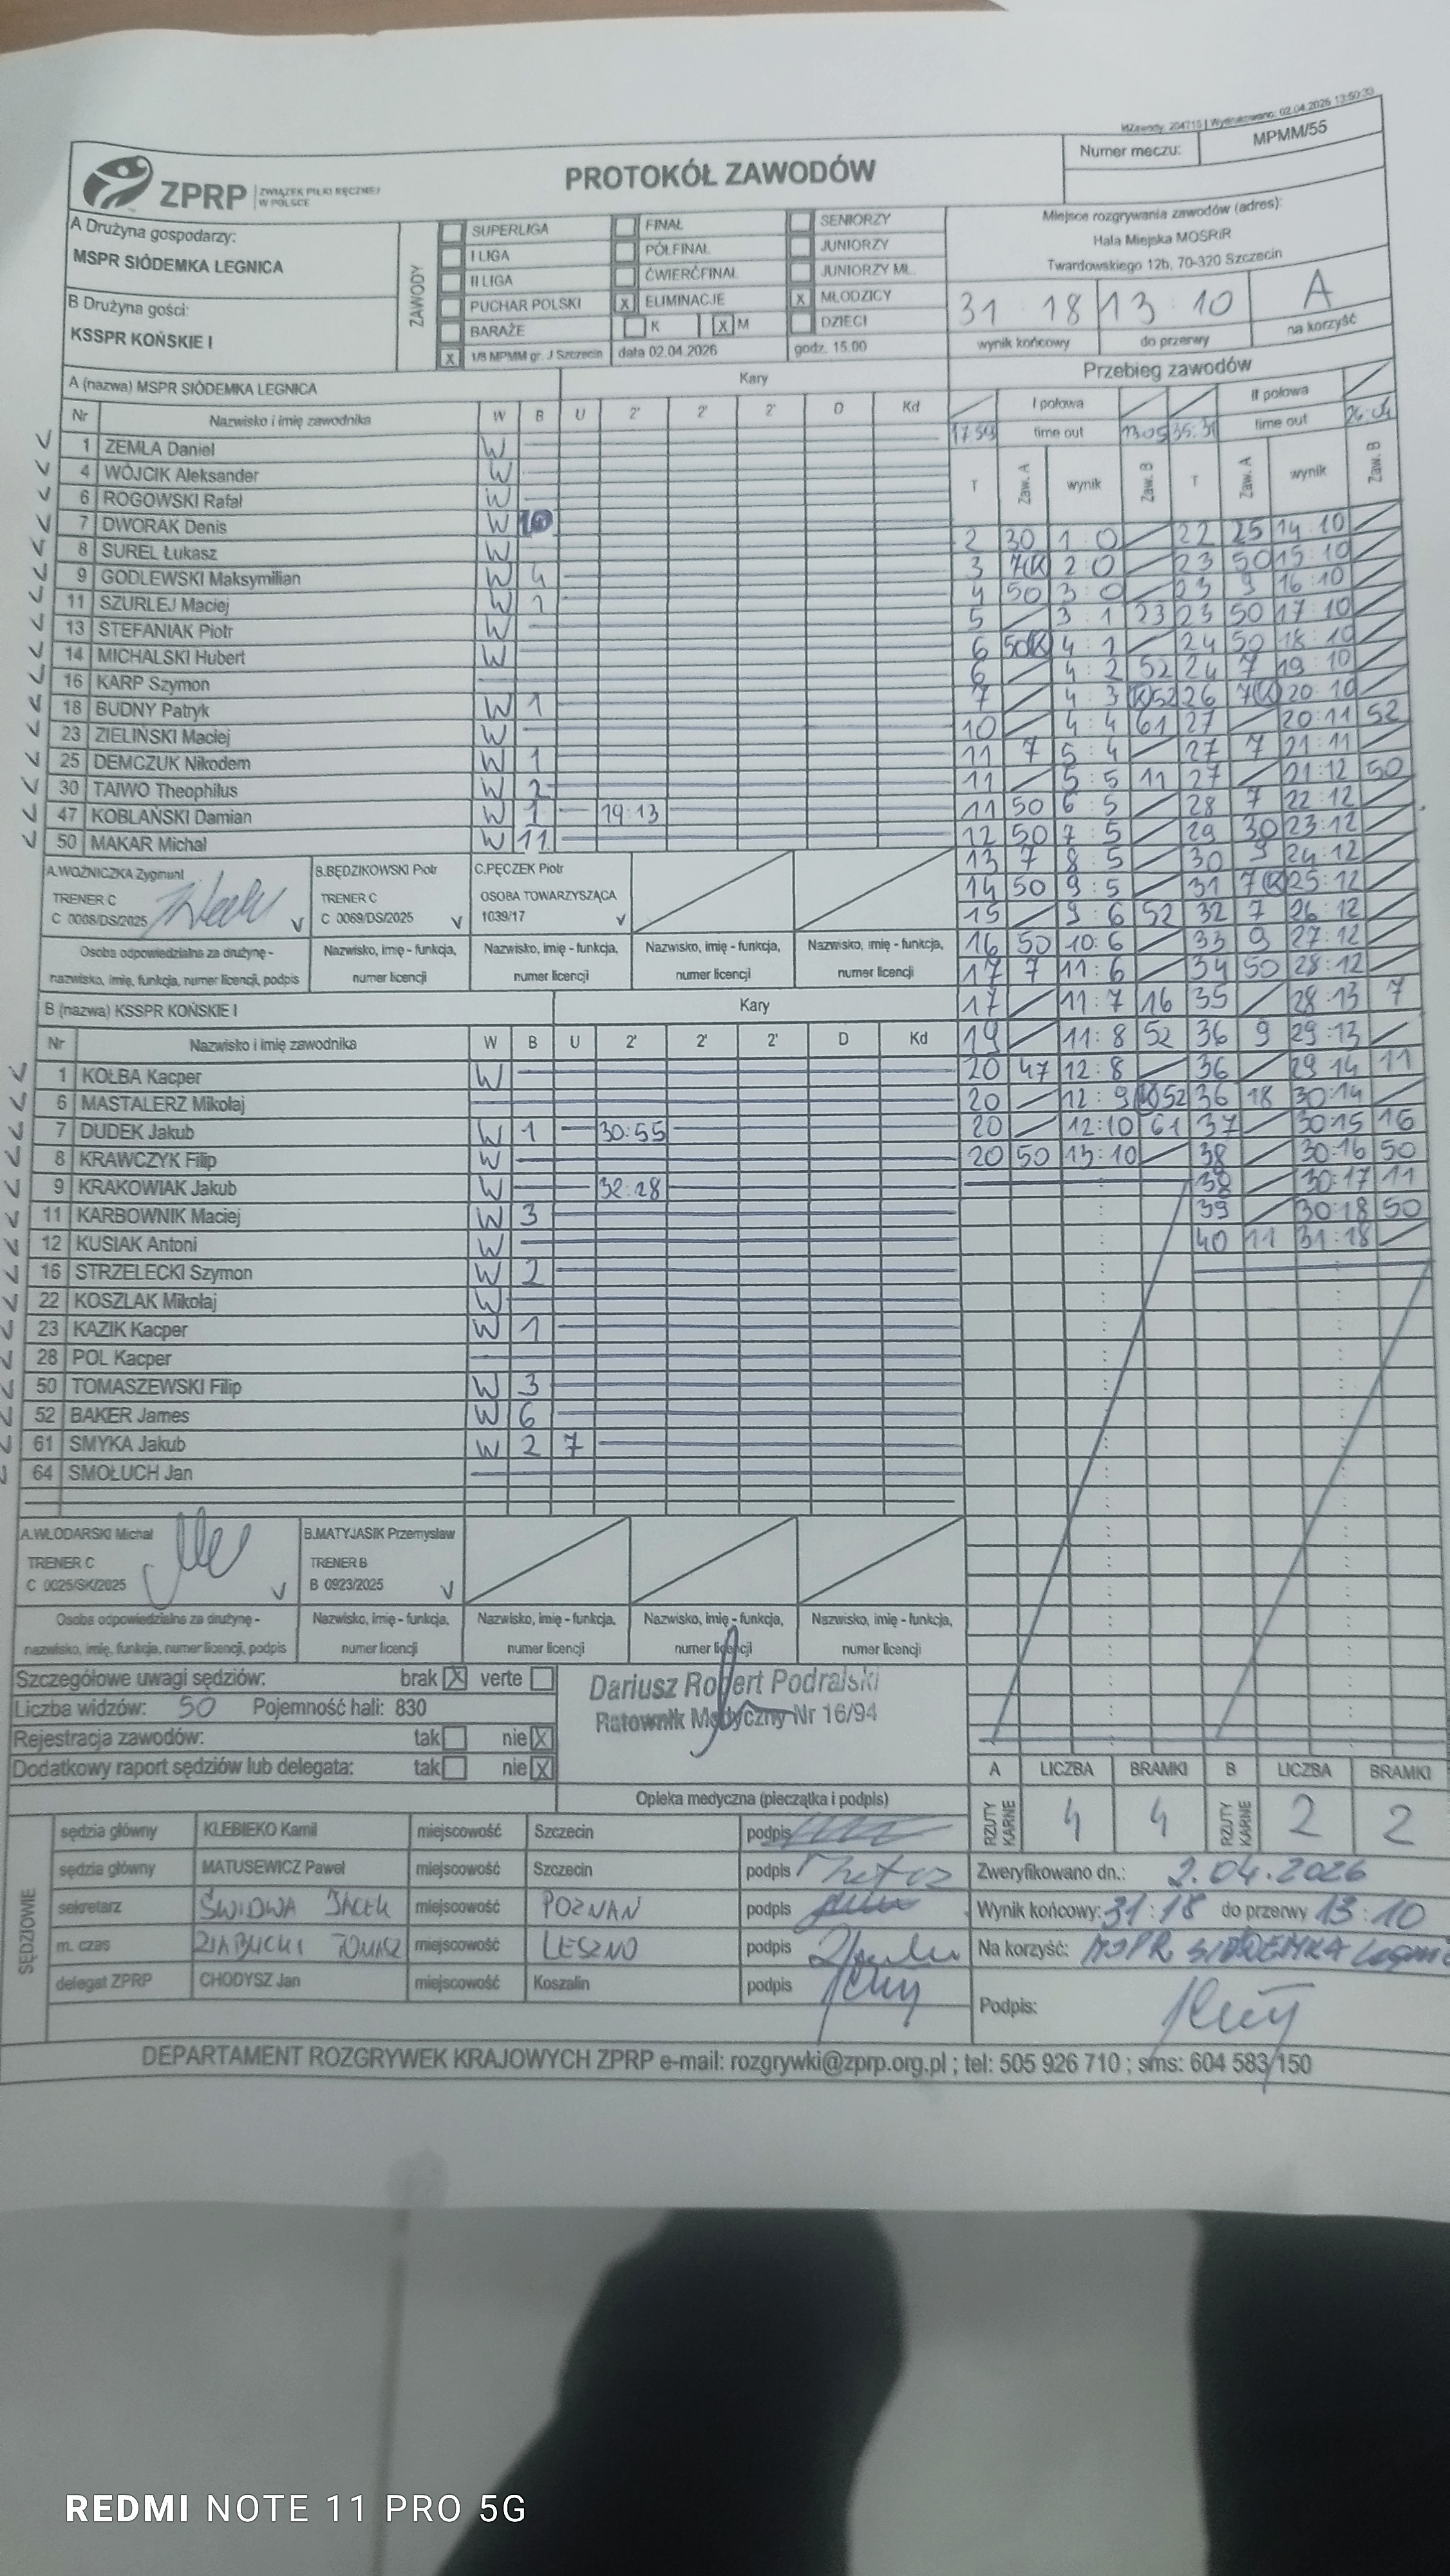 IdZawody: 204715 | Wydrukowano: 02.04.2026 13:50:33
ZPRP ZWIĄZEK PIŁKI RĘCZNEJ W POLSCE
PROTOKÓŁ ZAWODÓW
Numer meczu: MPMM/55
A Drużyna gospodarzy:
MSPR SIÓDEMKA LEGNICA
B Drużyna gości:
KSSPR KOŃSKIE I
ZAWODY
SUPERLIGA FINAŁ SENIORZY
I LIGA PÓŁFINAŁ JUNIORZY
II LIGA ĆWIERĆFINAŁ JUNIORZY MŁ.
PUCHAR POLSKI X ELIMINACJE X MŁODZICY
BARAŻE K X M DZIECI
X 1/8 MPMM gr. J Szczecin data 02.04.2026 godz. 15.00
Miejsce rozgrywania zawodów (adres):
Hala Miejska MOSRiR
Twardowskiego 12b, 70-320 Szczecin
31 : 18 13 : 10 A
wynik końcowy do przerwy na korzyść
A (nazwa) MSPR SIÓDEMKA LEGNICA Kary
Nr Nazwisko i imię zawodnika W B U 2' 2' 2' D Kd
1 ZEMLA Daniel W
4 WÓJCIK Aleksander W
6 ROGOWSKI Rafał W
7 DWORAK Denis W 10
8 SUREL Łukasz W
9 GODLEWSKI Maksymilian W 4
11 SZURLEJ Maciej W 1
13 STEFANIAK Piotr W
14 MICHALSKI Hubert W
16 KARP Szymon
18 BUDNY Patryk W 1
23 ZIELIŃSKI Maciej W
25 DEMCZUK Nikodem W 1
30 TAIWO Theophilus W 2
47 KOBLAŃSKI Damian W 1 19:13
50 MAKAR Michał W 11
A.WOŹNICZKA Zygmunt B.BĘDZIKOWSKI Piotr C.PĘCZEK Piotr
TRENER C TRENER C OSOBA TOWARZYSZĄCA
C 0068/DS/2025 V C 0069/DS/2025 V 1039/17 V
Osoba odpowiedzialna za drużynę - Nazwisko, imię - funkcja, Nazwisko, imię - funkcja, Nazwisko, imię - funkcja, Nazwisko, imię - funkcja,
nazwisko, imię, funkcja, numer licencji, podpis numer licencji numer licencji numer licencji numer licencji
B (nazwa) KSSPR KOŃSKIE I Kary
Nr Nazwisko i imię zawodnika W B U 2' 2' 2' D Kd
1 KOŁBA Kacper W
6 MASTALERZ Mikołaj
7 DUDEK Jakub W 1 30:55
8 KRAWCZYK Filip W
9 KRAKOWIAK Jakub W 32:28
11 KARBOWNIK Maciej W 3
12 KUSIAK Antoni W
16 STRZELECKI Szymon W 2
22 KOSZLAK Mikołaj W
23 KAZIK Kacper W 1
28 POL Kacper
50 TOMASZEWSKI Filip W 3
52 BAKER James W 6
61 SMYKA Jakub W 2 7
64 SMOŁUCH Jan
A.WŁODARSKI Michał B.MATYJASIK Przemysław
TRENER C TRENER B
C 0025/SK/2025 V B 0923/2025 V
Osoba odpowiedzialna za drużynę - Nazwisko, imię - funkcja, Nazwisko, imię - funkcja, Nazwisko, imię - funkcja, Nazwisko, imię - funkcja,
nazwisko, imię, funkcja, numer licencji, podpis numer licencji numer licencji numer licencji numer licencji
Przebieg zawodów
I połowa II połowa
17:59 time out 13:05 35:31 time out
T Zaw. A wynik Zaw. B T Zaw. A wynik Zaw. B
2 30 1 : 0 22 25 14 : 10
3 7(K) 2 : 0 23 50 15 : 10
4 50 3 : 0 23 9 16 : 10
5 3 : 1 23 23 50 17 : 10
6 50(K) 4 : 1 24 50 18 : 10
6 4 : 2 52 24 7 19 : 10
7 4 : 3 (K)52 26 7(K) 20 : 10
10 4 : 4 61 27 20 : 11 52
11 7 5 : 4 27 7 21 : 11
11 5 : 5 11 27 21 : 12 50
11 50 6 : 5 28 7 22 : 12
12 50 7 : 5 29 30 23 : 12
13 7 8 : 5 30 9 24 : 12
14 50 9 : 5 31 7(K) 25 : 12
15 9 : 6 52 32 7 26 : 12
16 50 10 : 6 33 9 27 : 12
17 7 11 : 6 34 50 28 : 12
17 11 : 7 16 35 28 : 13 7
19 11 : 8 52 36 9 29 : 13
20 47 12 : 8 36 29 : 14 11
20 12 : 9 (K)52 36 18 30 : 14
20 12 : 10 61 37 30 : 15 16
20 50 13 : 10 38 30 : 16 50
38 30 : 17 11
39 30 : 18 50
40 11 31 : 18
Szczegółowe uwagi sędziów: brak X verte
Liczba widzów: 50 Pojemność hali: 830
Rejestracja zawodów: tak nie X
Dodatkowy raport sędziów lub delegata: tak nie X
Dariusz Robert Podralski
Ratownik Medyczny Nr 16/94
Opieka medyczna (pieczątka i podpis)
A LICZBA BRAMKI B LICZBA BRAMKI
RZUTY KARNE 4 4 RZUTY KARNE 2 2
SĘDZIOWIE
sędzia główny KLEBIEKO Kamil miejscowość Szczecin podpis
sędzia główny MATUSEWICZ Paweł miejscowość Szczecin podpis
sekretarz ŚWIDWA JACEK miejscowość POZNAŃ podpis
m. czas TOMASZ miejscowość LESZNO podpis
delegat ZPRP CHODYSZ Jan miejscowość Koszalin podpis
Zweryfikowano dn.: 2.04.2026
Wynik końcowy: 31:18 do przerwy 13:10
Na korzyść: MSPR SIÓDEMKA
Podpis:
DEPARTAMENT ROZGRYWEK KRAJOWYCH ZPRP e-mail: rozgrywki@zprp.org.pl ; tel: 505 926 710 ; sms: 604 583 150
REDMI NOTE 11 PRO 5G